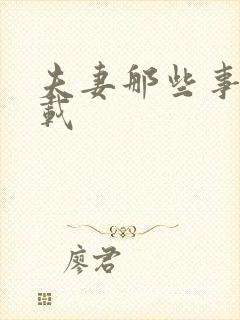 夫妻那些事
载
廖君